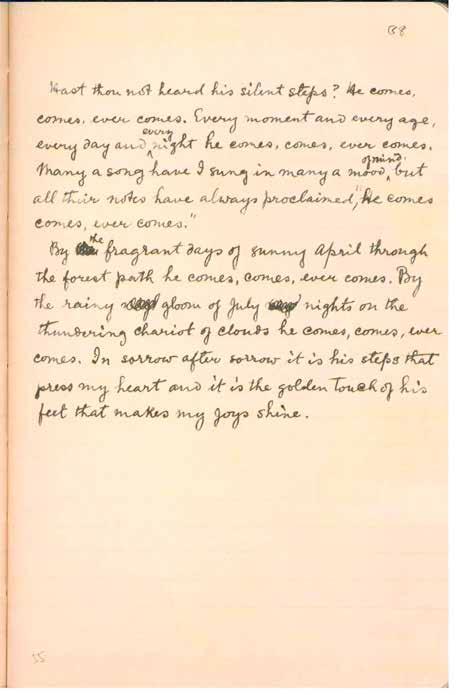 Hast thou not heard his silent steps? He comes,
comes, ever comes. Every moment and every age,
every day and every night he comes, comes, ever comes.
Many a song have I sung in many a mood of mind, but
all their notes have always proclaimed, "He comes
comes, ever comes."
By the fragrant days of sunny April through
the forest path he comes, comes, ever comes. By
the rainy gloom of July nights on the
thundering chariot of clouds he comes, comes, ever
comes. In sorrow after sorrow it is his steps that
press my heart and it is the golden touch of his
feet that makes my joys shine.